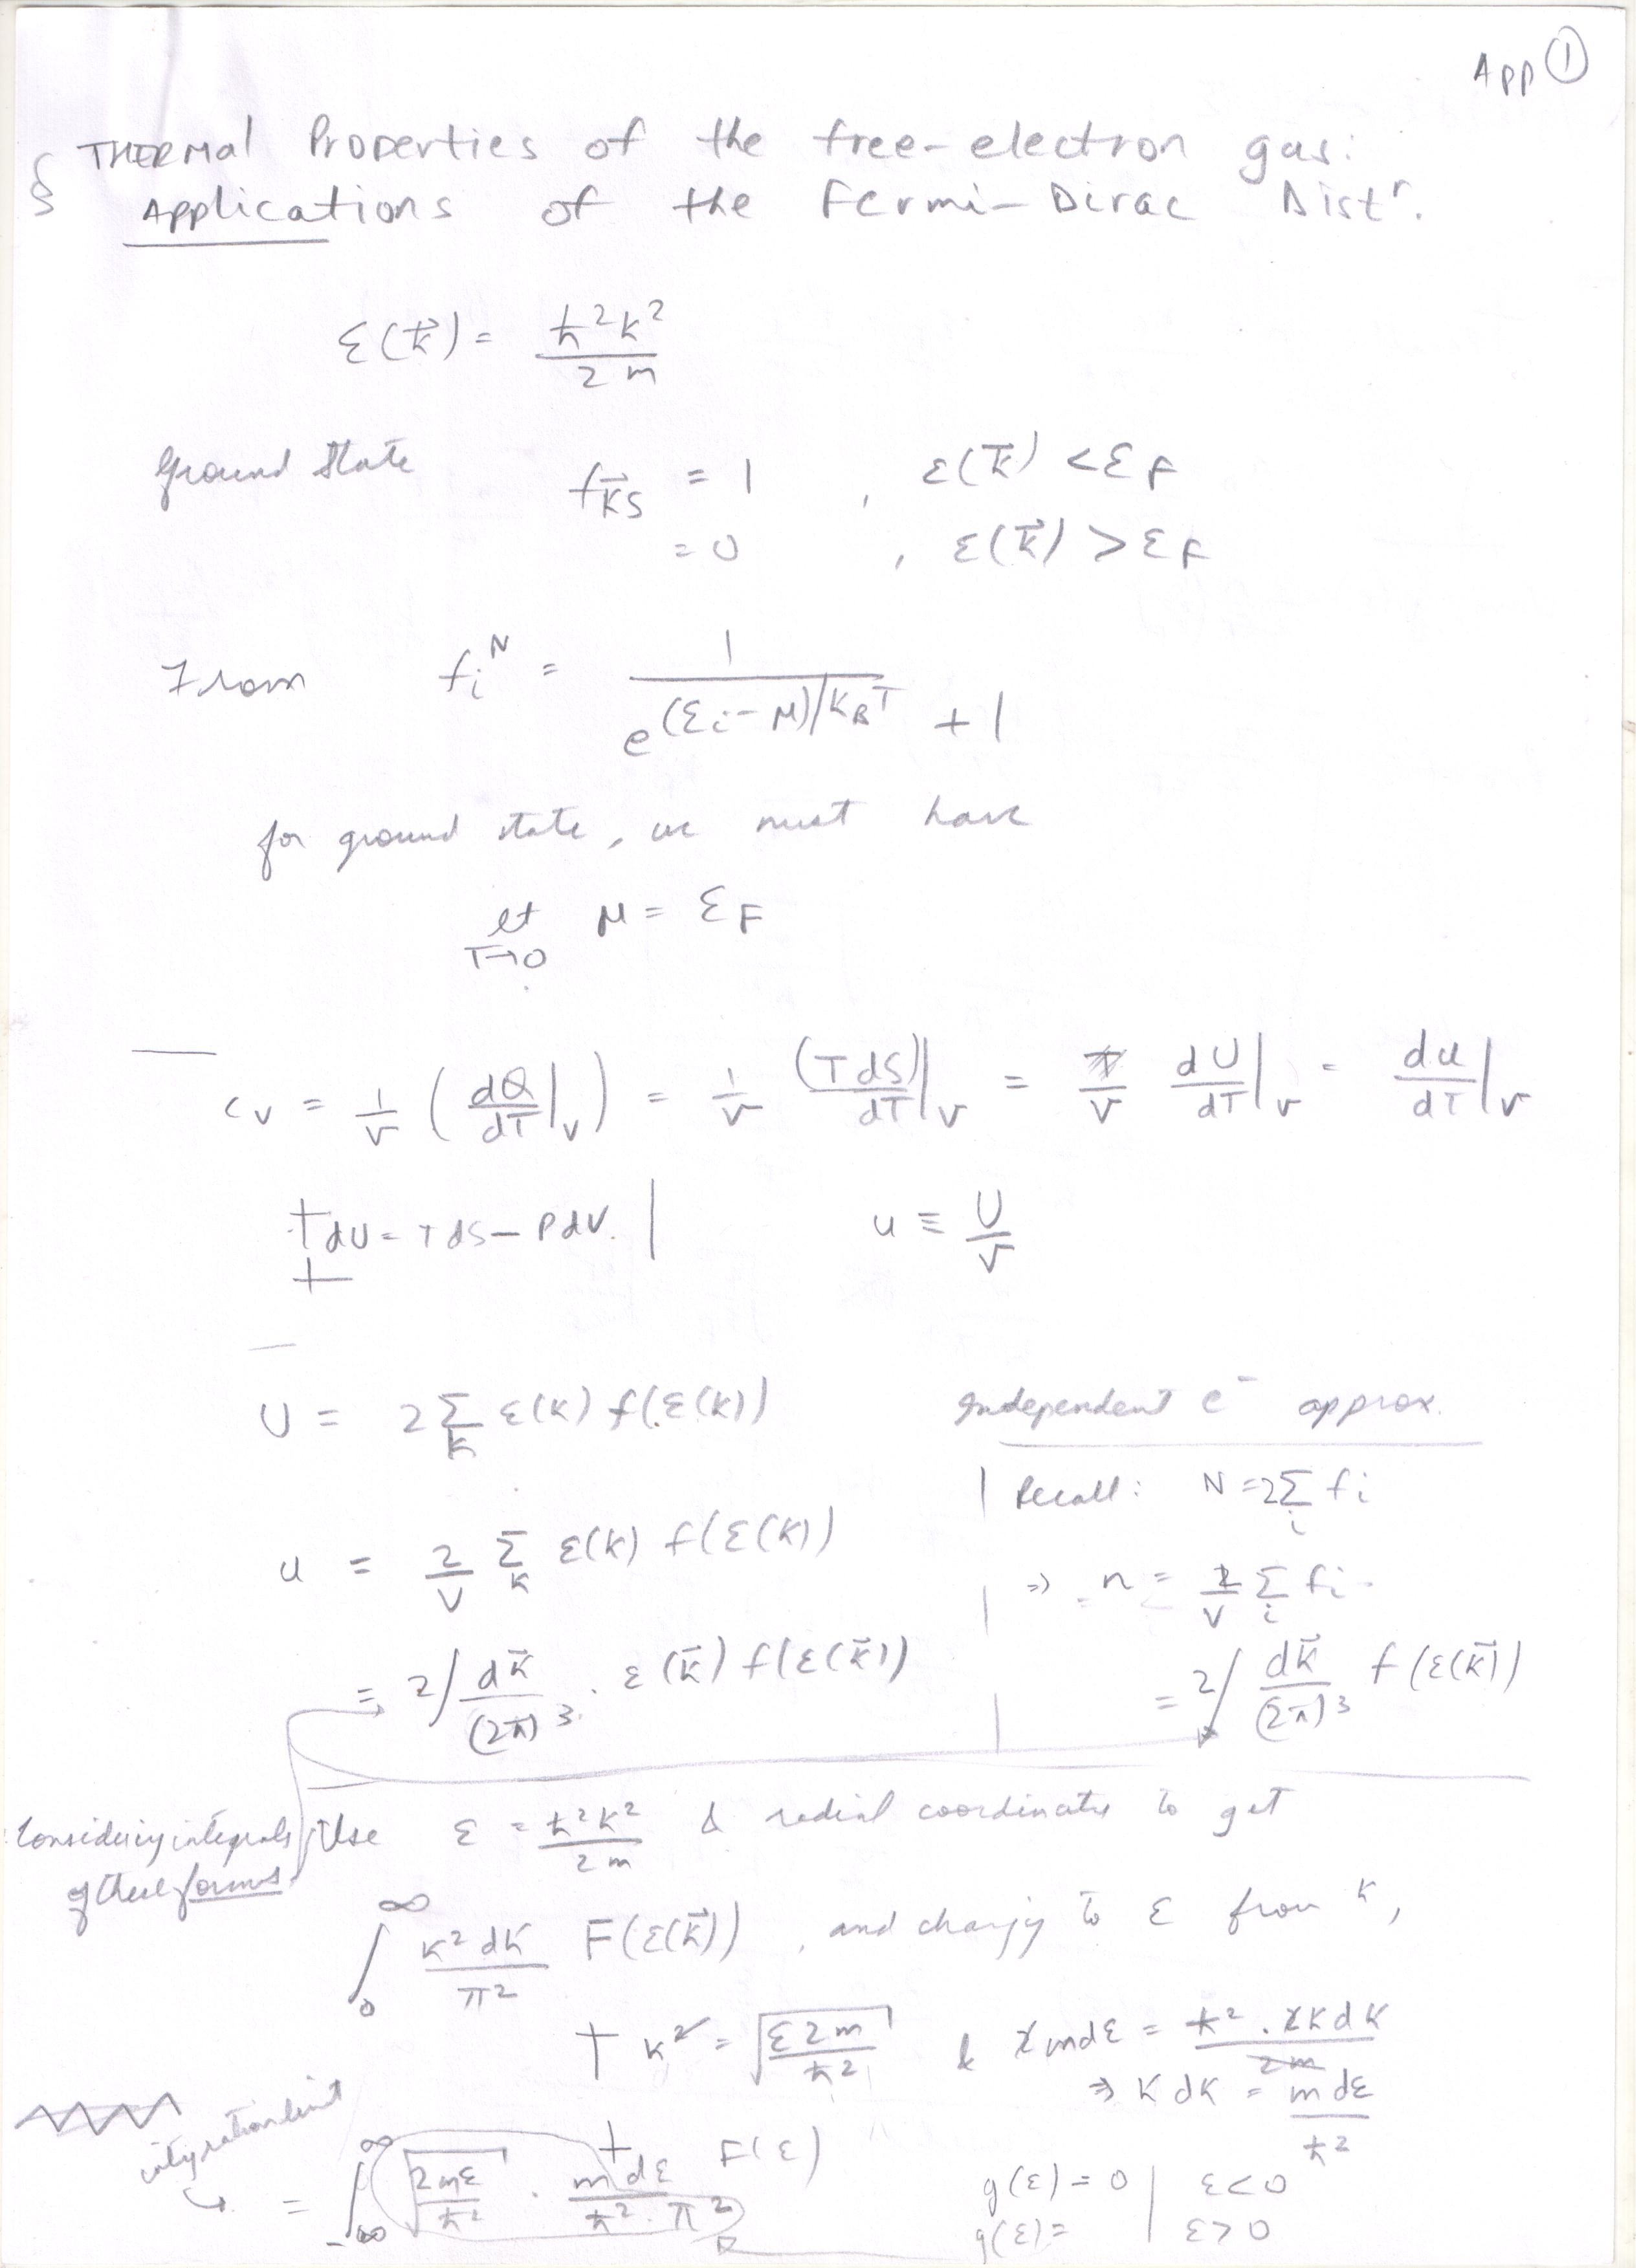 App ①
§ THERMal Properties of the free-electron gas:
Applications of the Fermi-Dirac Distr.
ε(k⃗) = ħ²k² / 2m
Ground State f_k⃗s = 1 , ε(k⃗) < ε_F
= 0 , ε(k⃗) > ε_F
From f_i^N = 1 / (e^{(ε_i - μ)/k_B T} + 1)
for ground state, we must have
lt_{T→0} μ = ε_F
c_v = 1/V (dQ/dT|_v) = 1/V (TdS)/dT|_v = 1/V dU/dT|_v = du/dT|_v
† dU = TdS - PdV. | u ≡ U/V
U = 2 Σ_k ε(k) f(ε(k)) Independent e⁻ approx.
Recall: N = 2Σ_i f_i
u = 2/V Σ_k ε(k) f(ε(k))
⇒ n = 2/V Σ_i f_i
= 2∫ dk⃗/(2π)³ . ε(k⃗) f(ε(k⃗)) = 2∫ dk⃗/(2π)³ f(ε(k⃗))
Considering integrals of these forms
Use ε = ħ²k²/2m & radial coordinates to get
∫_0^∞ k²dk/π² F(ε(k⃗)) , and changing to ε from k,
† k = √(ε2m/ħ²) & 2mdε = ħ².2kdk/2m
⇒ kdk = mdε/ħ²
integration limit
= ∫_{-∞}^∞ √(2mε/ħ²) . mdε/ħ².π² F(ε)
g(ε) = 0 | ε<0
g(ε) = | ε>0